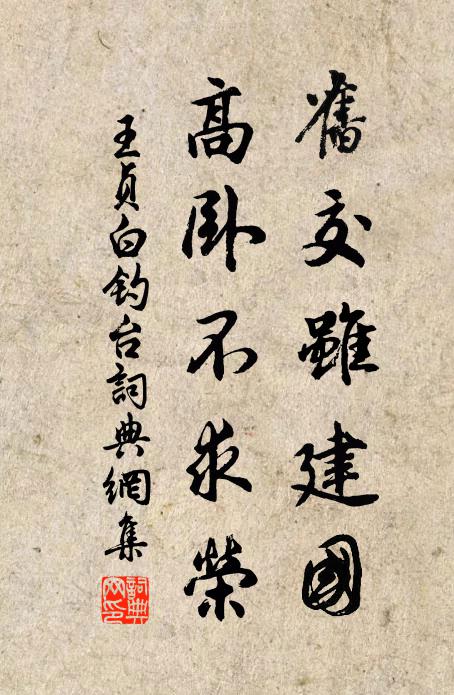 舊交雖建國
高卧不求榮
王貞白釣台詞典網集
詞典网印